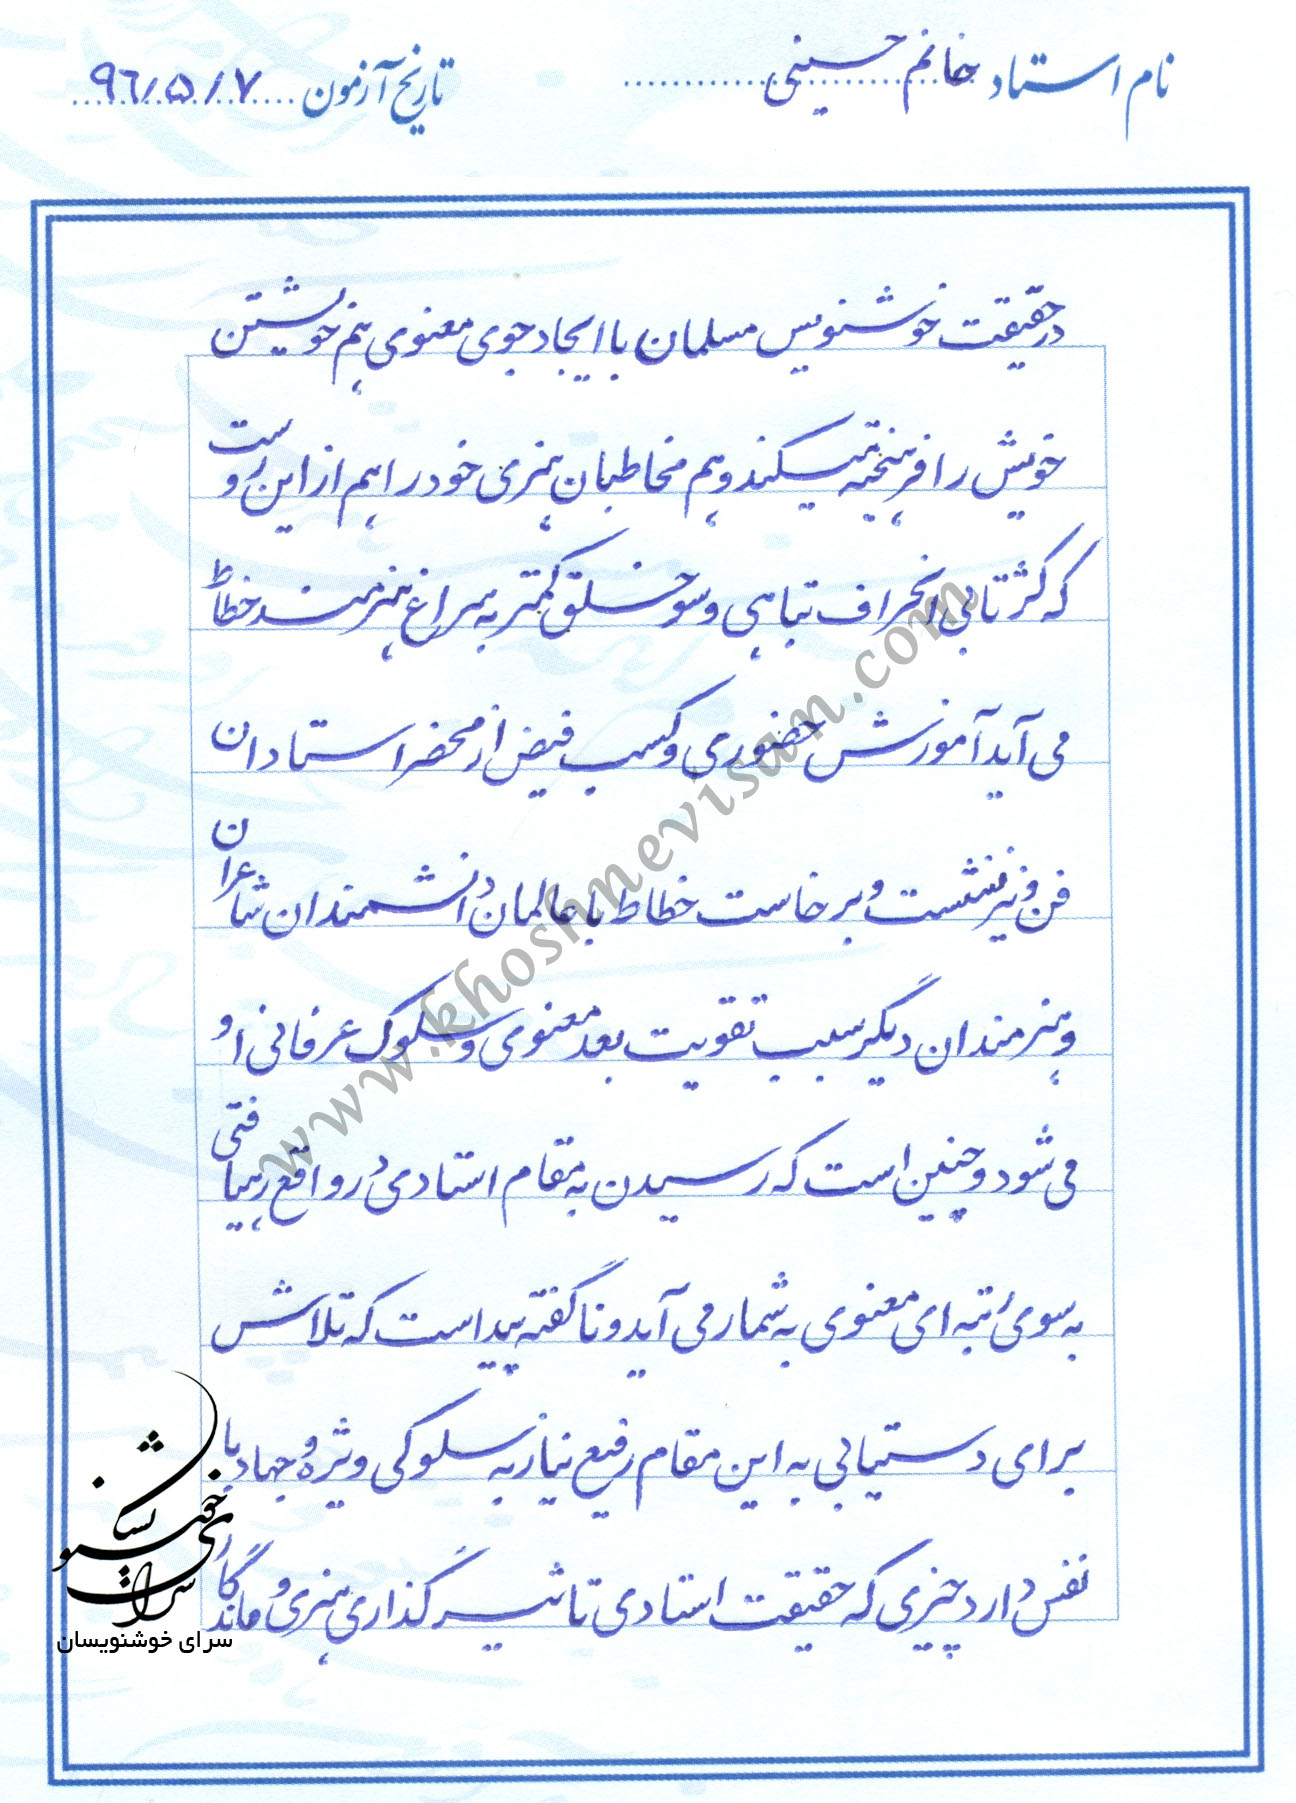 نام استاد خانم حسینی
تاریخ آزمون ۹۶/۵/۷
درحقیقت خوشنویس مسلمان با ایجاد جوی معنوی هم خویشتن
خویش را فرهیخته میکند و هم مخاطبان هنری خود را هم از این روست
که کژتابی انحراف تباهی و سوخلق کمتر به سراغ هنرمند خطاط
می آید آموزش حضوری و کسب فیض از محضر استادان
فن و نیز نشست و برخاست خطاط با عالمان و دانشمندان شاعران
و هنرمندان دیگر سبب تقویت بعد معنوی و سلوک عرفانی او
می شود و چنین است که رسیدن به مقام استادی در واقع رهیافتی
به سوی رتبه ای معنوی به شمار می آید و ناگفته پیداست که تلاش
برای دستیابی به این مقام رفیع نیاز به سلوکی ویژه و جهاد با
نفس دارد چیزی که حقیقت استادی تاثیرگذاری هنری و ماندگار
www.khoshnevisan.com
سرای خوشنویسان
سرای خوشنویسان